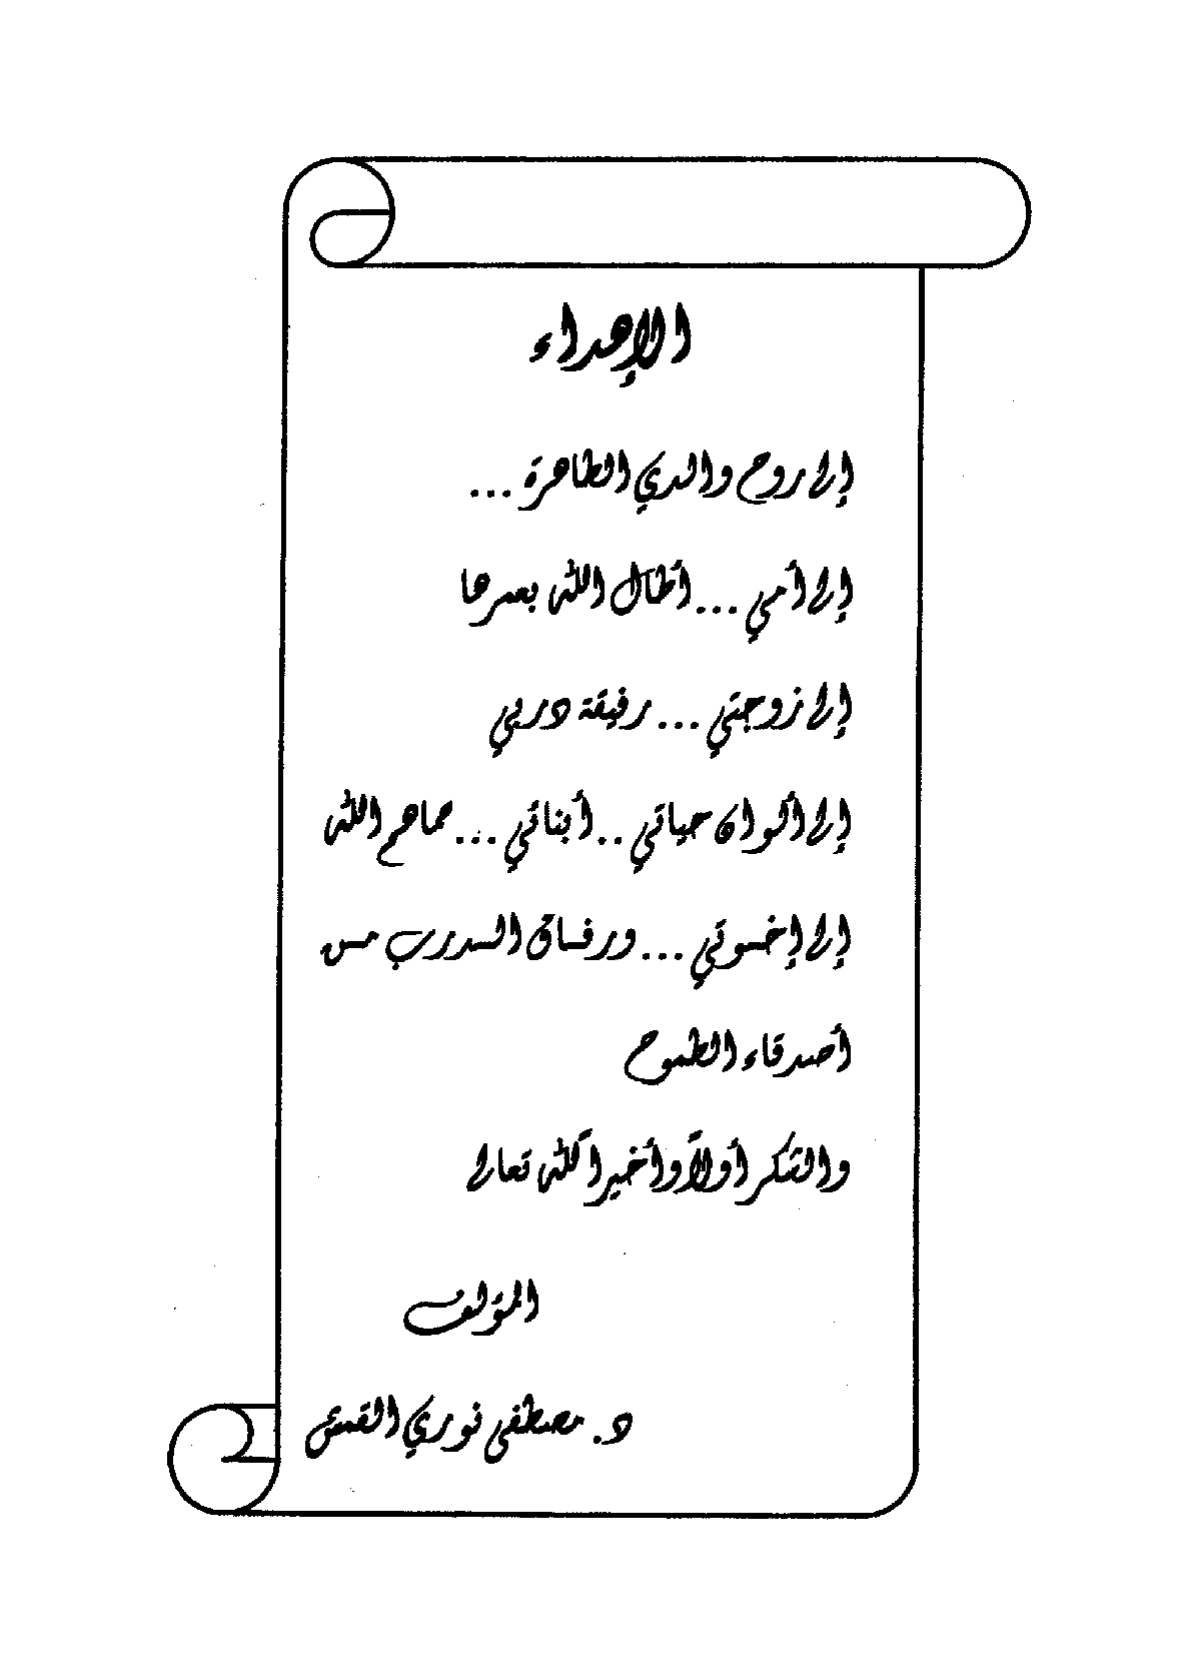 الإهداء
إلى روح والدي الطاهرة ...
إلى أمي ... أطال الله بعمرها
إلى زوجتي ... رفيقة دربي
إلى ألوان حياتي .. أبنائي ... حماهم الله
إلى إخـوتي ... ورفـاق الـدرب مـن
أصدقاء الطموح
والشكر أولاً وأخيراً لله تعالى
المؤلف
د. مصطفى نوري القمش